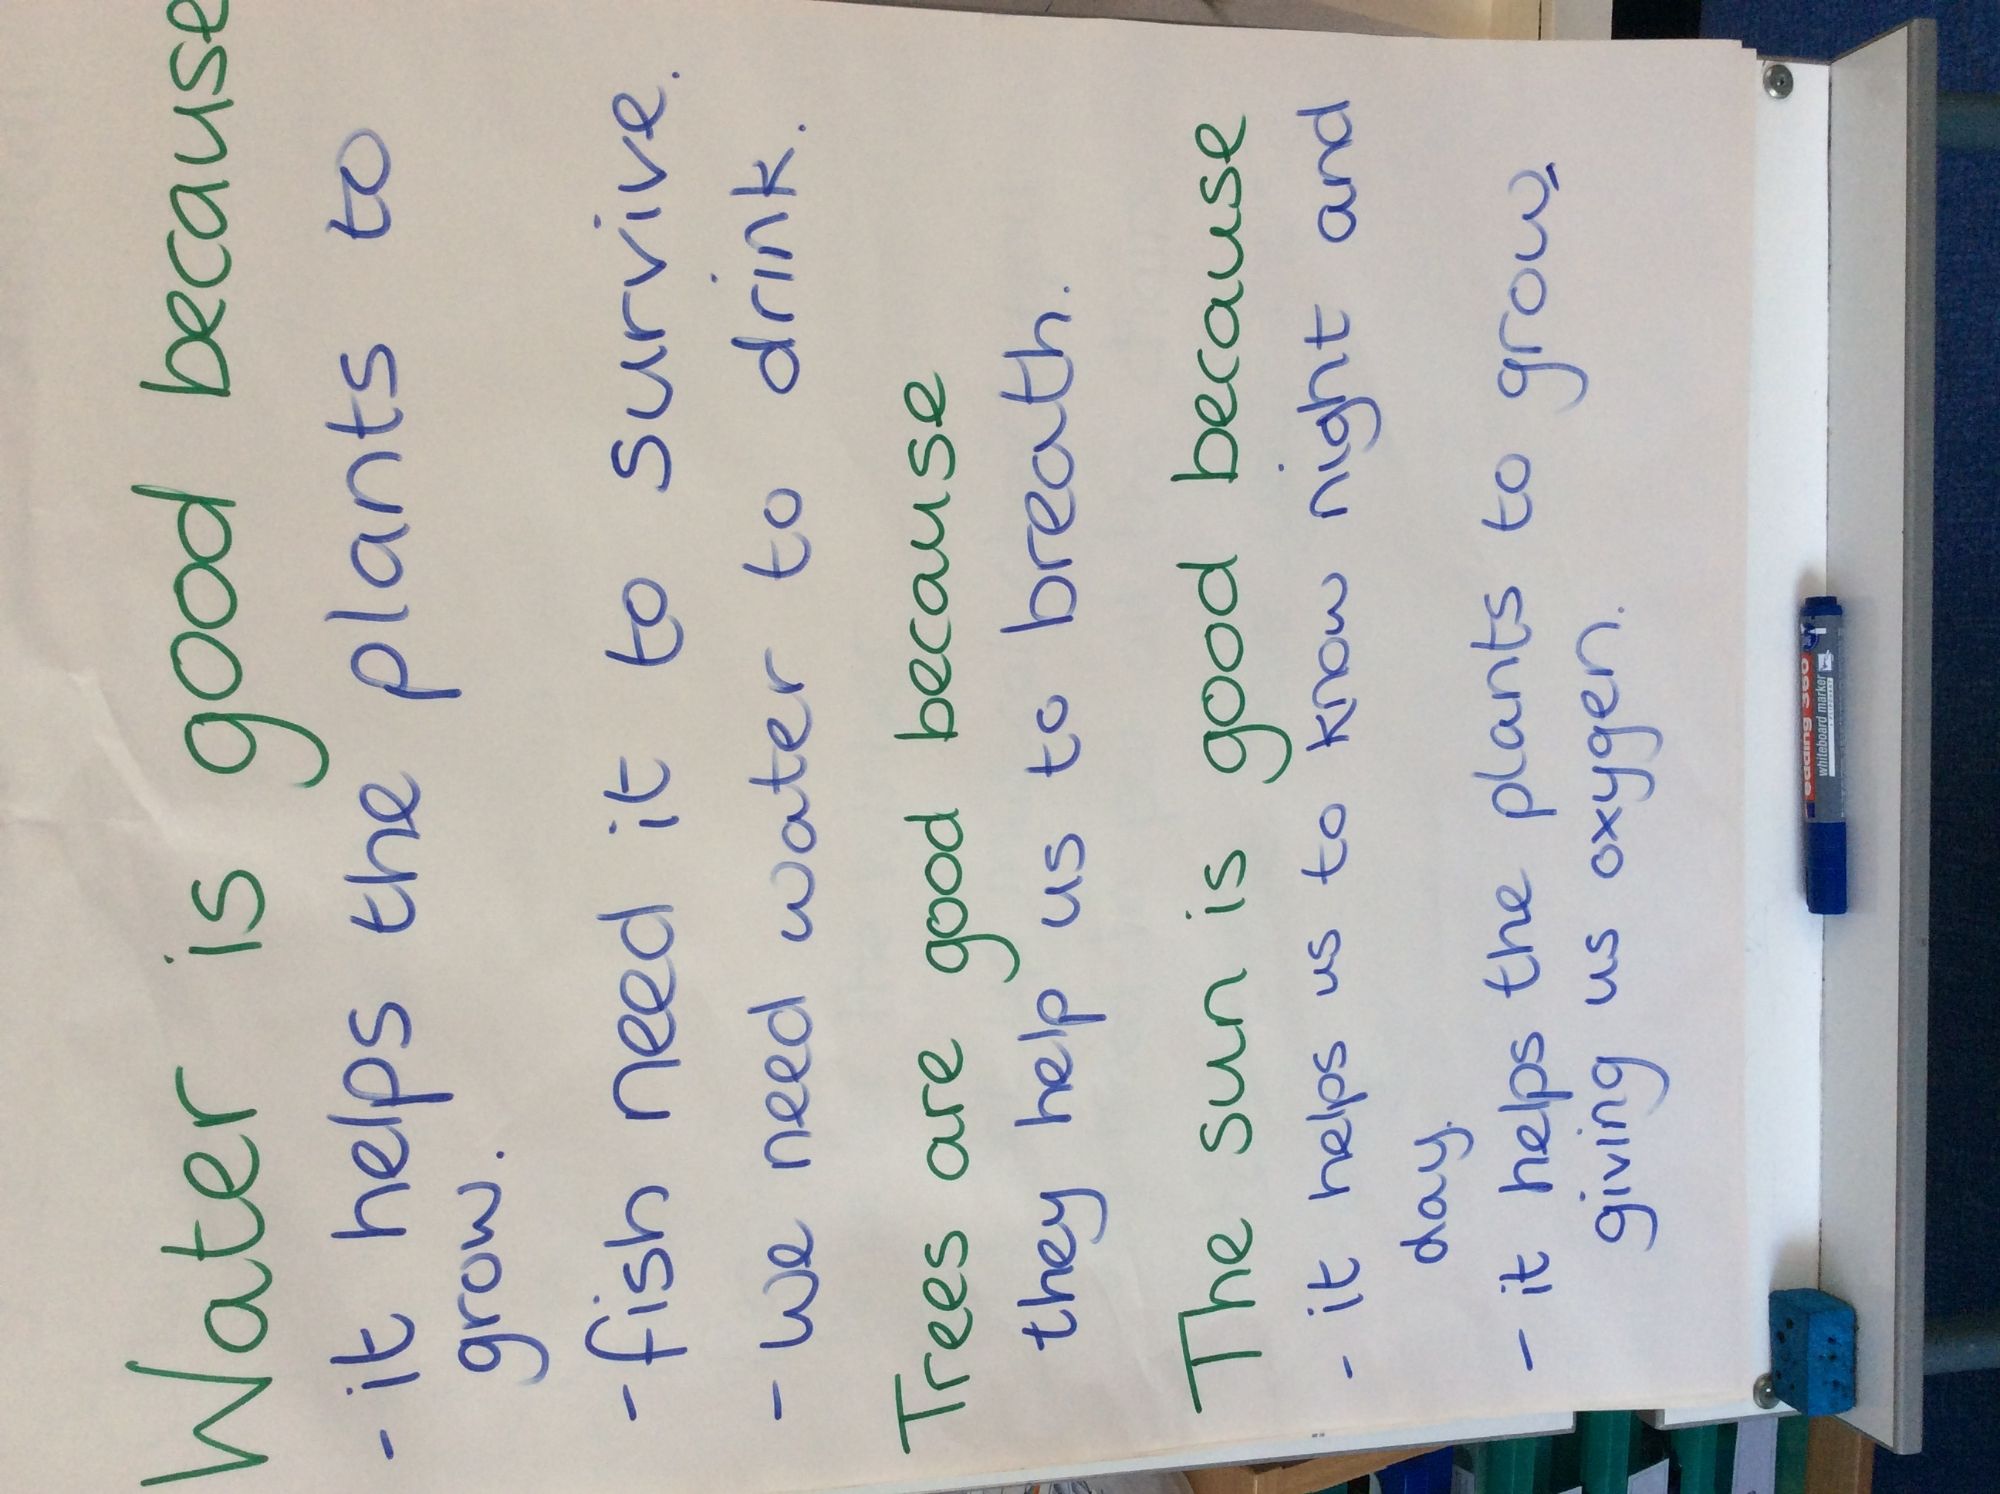 Water is good because
- it helps the plants to
grow.
- fish need it to survive.
- we need water to drink.
Trees are good because
they help us to breath.
The sun is good because
- it helps us to know night and
day.
- it helps the plants to grow,
giving us oxygen.
edding 360
whiteboard marker